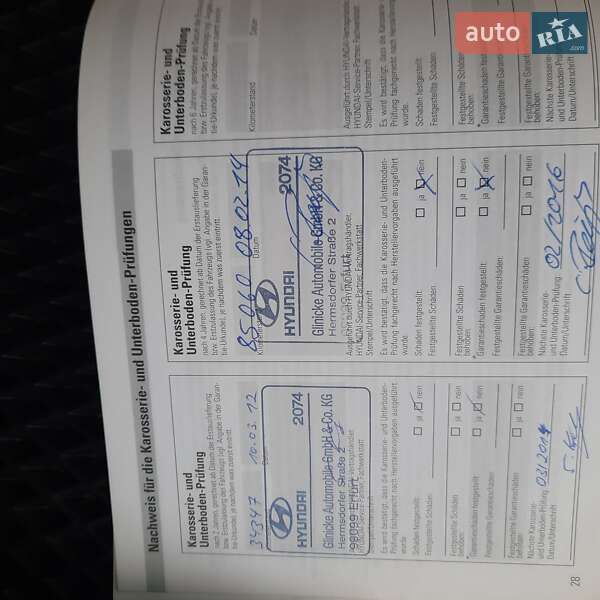 auto RIA.com
Nachweis für die Karosserie- und Unterboden-Prüfungen
Karosserie- und
Unterboden-Prüfung
nach 2 Jahren, gerechnet ab Datum der Erstauslieferung
bzw. Erstzulassung des Fahrzeugs (vgl. Angabe in der Garan-
tie-Urkunde), je nachdem was zuerst eintritt.
34347 10.03.12
Datum
HYUNDAI 2074
Glinicke Automobile GmbH & Co. KG
Hermsdorfer Straße 2
99099 Erfurt
HYUNDAI-Service-Partner, Fachwerkstatt
Es wird bestätigt, dass die Karosserie- und Unterboden-
Prüfung fachgerecht nach Herstellervorgaben ausgeführt
wurde.
Schaden festgestellt: ja nein
Festgestellte Schäden:
Festgestellte Schäden
behoben: ja nein
*Garantieschaden festgestellt: ja nein
Festgestellte Garantieschäden:
Festgestellte Garantieschäden
behoben: ja nein
Nächste Karosserie-
und Unterboden-Prüfung: 03/2014
Datum/Unterschrift
Karosserie- und
Unterboden-Prüfung
nach 4 Jahren, gerechnet ab Datum der Erstauslieferung
bzw. Erstzulassung des Fahrzeugs (vgl. Angabe in der Garan-
tie-Urkunde), je nachdem was zuerst eintritt.
85060 08.02.14
Datum
HYUNDAI 2074
Glinicke Automobile GmbH & Co. KG
Hermsdorfer Straße 2
Ausgeführt durch HYUNDAI-Vertragshändler,
HYUNDAI-Service-Partner, Fachwerkstatt
Stempel/Unterschrift
Es wird bestätigt, dass die Karosserie- und Unterboden-
Prüfung fachgerecht nach Herstellervorgaben ausgeführt
wurde.
Schaden festgestellt: ja nein
Festgestellte Schäden:
Festgestellte Schäden
behoben: ja nein
*Garantieschaden festgestellt: ja nein
Festgestellte Garantieschäden:
Festgestellte Garantieschäden
behoben: ja nein
Nächste Karosserie-
und Unterboden-Prüfung: 02/2016
Datum/Unterschrift
Karosserie- und
Unterboden-Prüfung
nach 6 Jahren, gerechnet ab Datum der
bzw. Erstzulassung des Fahrzeugs (vgl.
tie-Urkunde), je nachdem was zuerst eintritt.
Kilometerstand Datum
Ausgeführt durch HYUNDAI-Vertragshändler,
HYUNDAI-Service-Partner, Fachwerkstatt
Stempel/Unterschrift
Es wird bestätigt, dass die Karosserie-
Prüfung fachgerecht nach Herstellervorgaben
wurde.
Schaden festgestellt: ja
Festgestellte Schäden:
Festgestellte Schäden
behoben: ja
*Garantieschaden festgestellt:
Festgestellte Garantieschäden
Festgestellte Garantieschäden
behoben:
Nächste Karosserie-
und Unterboden-Prüfung:
Datum/Unterschrift
28